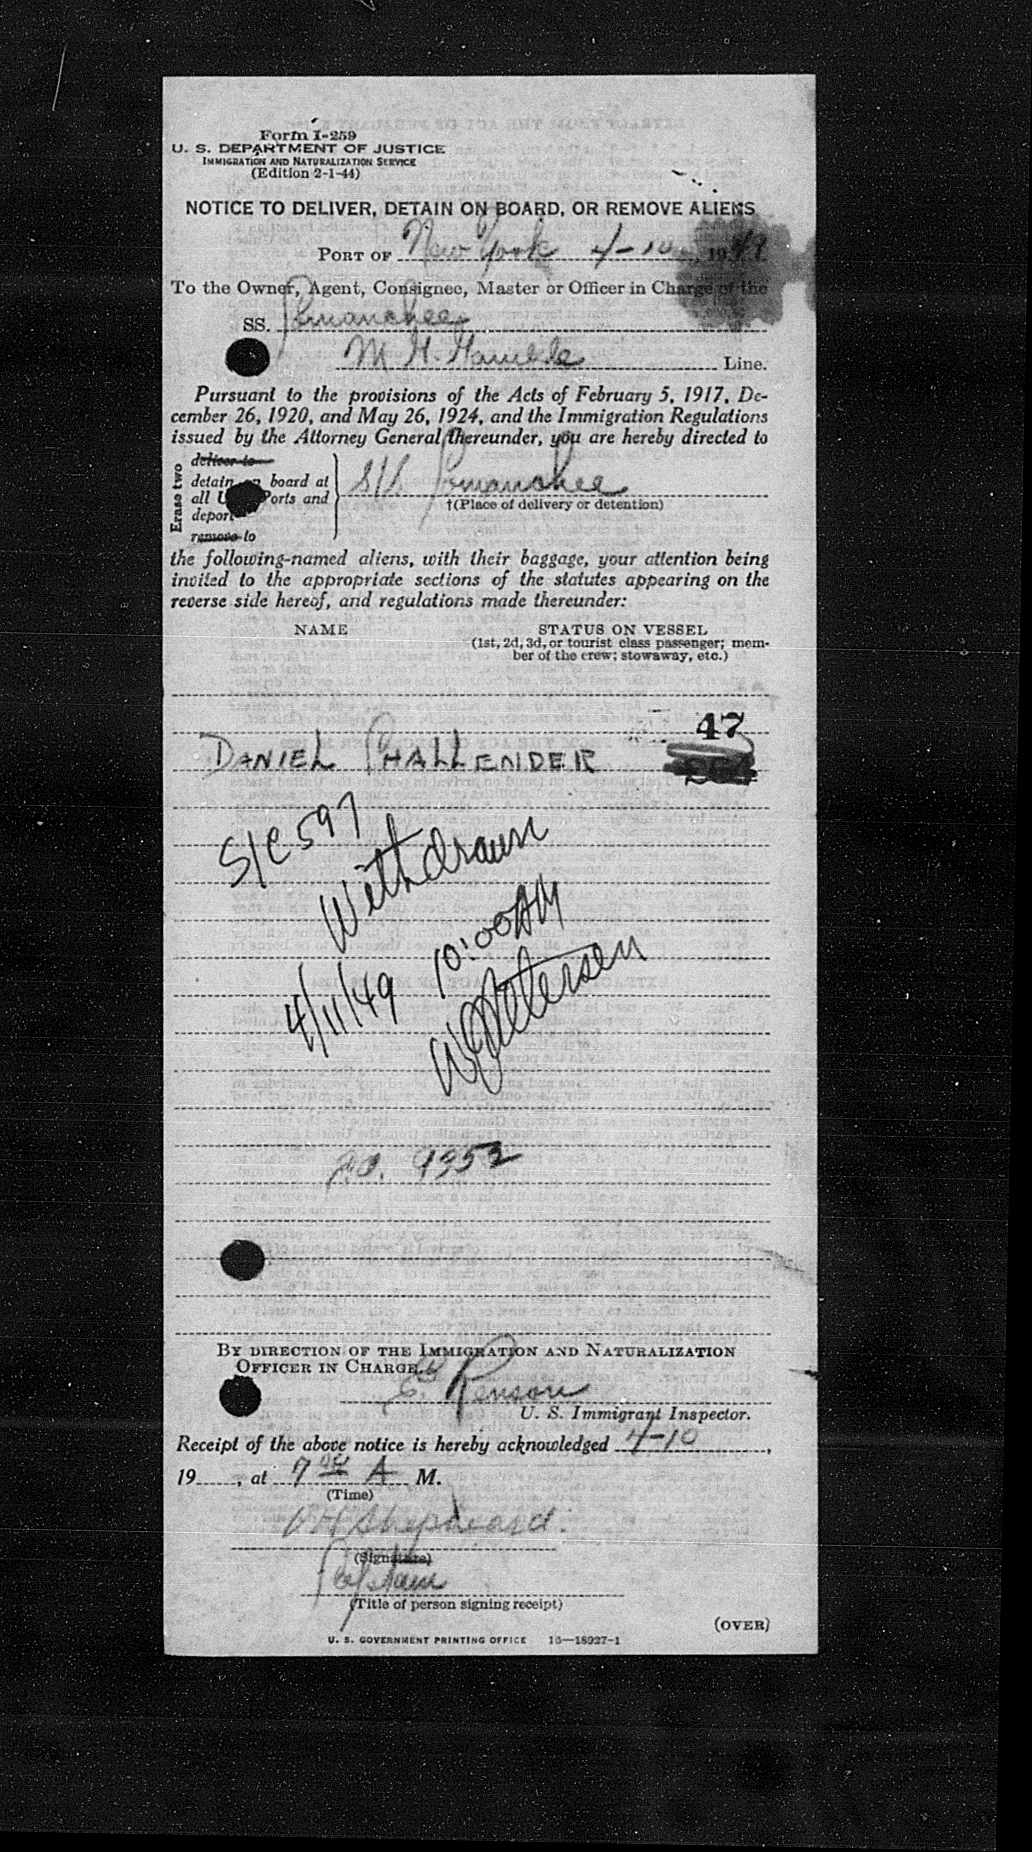 Form I-259
U. S. DEPARTMENT OF JUSTICE
IMMIGRATION AND NATURALIZATION SERVICE
(Edition 2-1-44)
NOTICE TO DELIVER, DETAIN ON BOARD, OR REMOVE ALIENS
PORT OF New York 4-10, 1949
To the Owner, Agent, Consignee, Master or Officer in Charge of the
SS.
M. H. Line.
Pursuant to the provisions of the Acts of February 5, 1917, De-
cember 26, 1920, and May 26, 1924, and the Immigration Regulations
issued by the Attorney General thereunder, you are hereby directed to
Erase two
deliver to
detain on board at
all U Ports and
deport
remove to
S/S
†(Place of delivery or detention)
the following-named aliens, with their baggage, your attention being
invited to the appropriate sections of the statutes appearing on the
reverse side hereof, and regulations made thereunder:
NAME STATUS ON VESSEL
(1st, 2d, 3d, or tourist class passenger; mem-
ber of the crew; stowaway, etc.)
47
DANIEL CHALLENDER
S/C 597
Withdrawn
4/11/49 10:00AM
W Petersen
9352
BY DIRECTION OF THE IMMIGRATION AND NATURALIZATION
OFFICER IN CHARGE.
U. S. Immigrant Inspector.
Receipt of the above notice is hereby acknowledged 4-10,
19, at 7 00 A M.
(Time)
Shepheard.
(Signature)
Captain
(Title of person signing receipt)
(OVER)
U. S. GOVERNMENT PRINTING OFFICE 16—18927-1